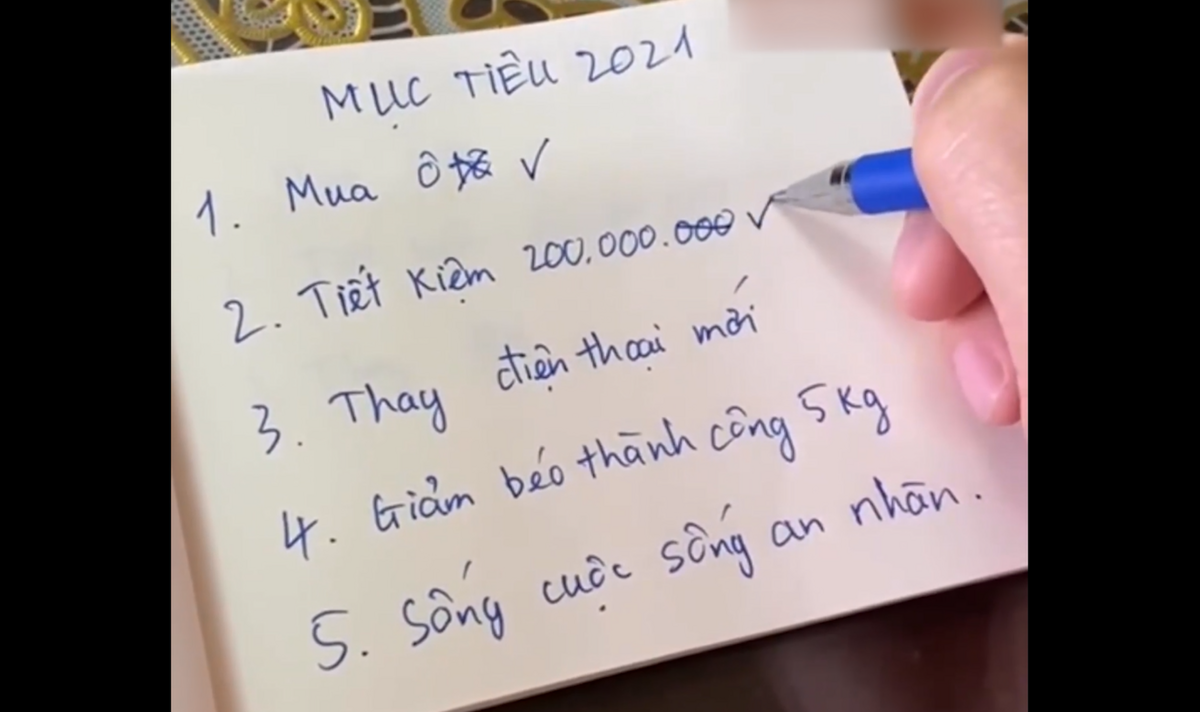 MỤC TIÊU 2021
1. Mua Ô tô ✓
2. Tiết kiệm 200.000.000 ✓
3. Thay điện thoại mới
4. Giảm béo thành công 5kg
5. Sống cuộc sống an nhàn.